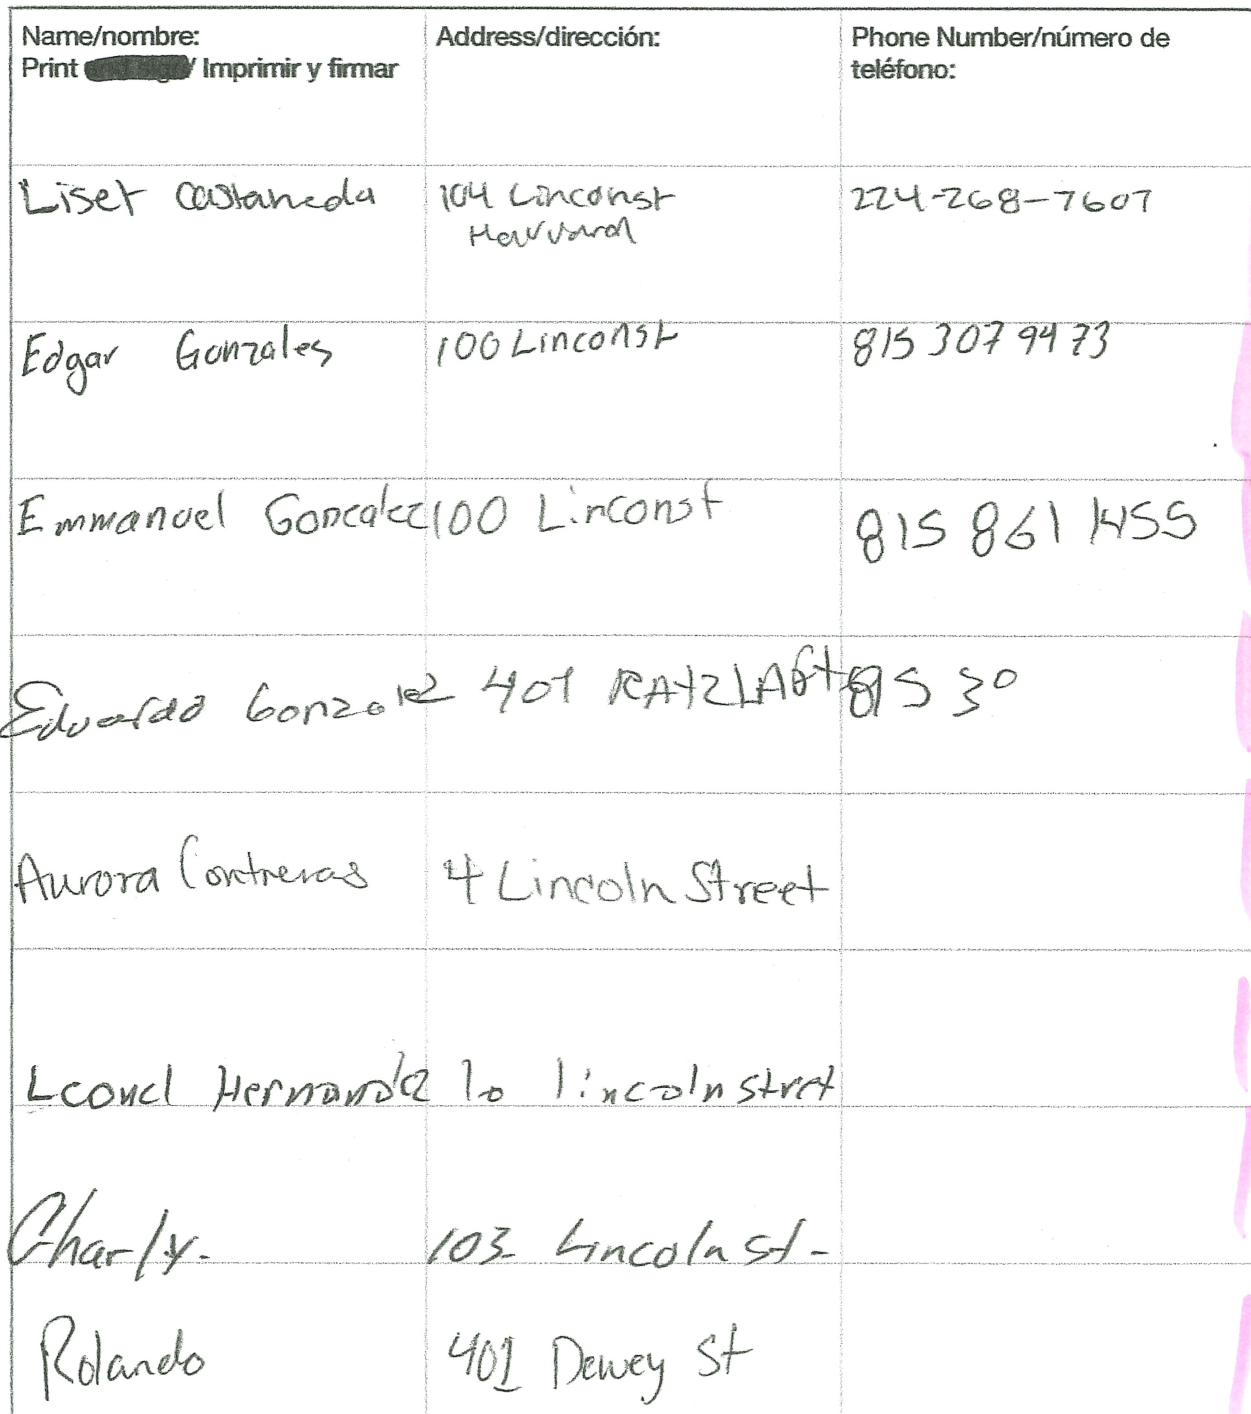 Name/nombre:
Print / Imprimir y firmar
Address/dirección:
Phone Number/número de
teléfono:
Liset Castaneda
104 Linconst
Harvard
224-268-7607
Edgar Gonzales
100 Linconst
815 307 9473
Emmanuel Goncalez
100 Linconst
815 861 1455
Eduardo Gonzalez
401
815 30
Aurora Contreras
4 Lincoln Street
Leonel Hernandez
10 lincoln stret
Charly.
103 Lincoln st-
Rolando
401 Dewey St